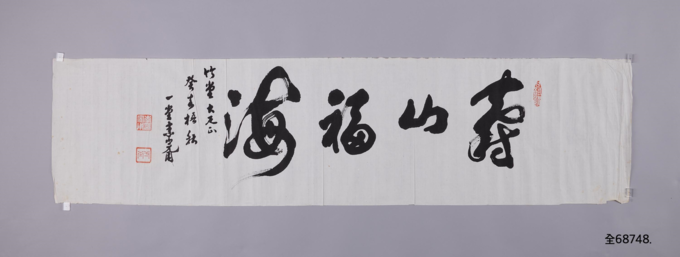 壽山福海
竹堂大兄正
癸亥梧秋
一堂
全68748.